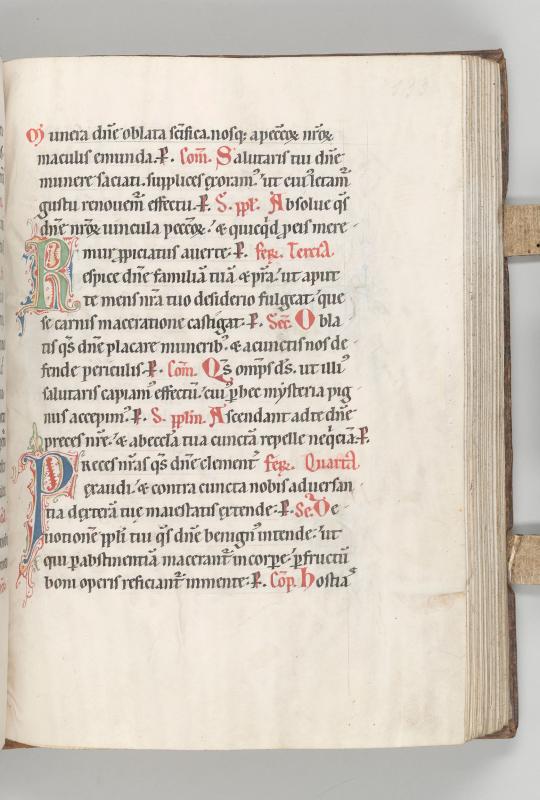 Munera dn̄e oblata sc̄ifica. nosq; a pecc̄oꝝ nr̄oꝝ
maculis emunda. P̲. Com̄. Salutaris tui dn̄e
munere saciati. supplices exoram᷒. ut cui᷒ letam̄
gustu renouem̄ effectu. P̲. S. ppl̄. Absolue q̄s
dn̄e nr̄oꝝ uincula pecc̄oꝝ. & quicq̇d p eis mere-
mur ppiciatus auerte. P̲. fer̄. Tercia.
Respice dn̄e familiā tuā & p̄ra. ut aput
te mens nr̄a tuo desiderio fulgeat. que
se carnis maceratione castigat. P̲. Sec̄. Obla
tis q̄s dn̄e placare munerib᷒. & a cunctis nos de-
fende periculis. P̲. Com̄. Q̄s omp̄s ds̄. ut illi᷒
salutaris capiam᷒ effectū. cui᷒ p hec mẏsteria pig
nus accepim᷒. P̲. S. ppl̄m. Ascendant ad te dn̄e
preces nr̄e. & ab eccl̄a tua cunctā repelle neq̇ciā. P̲.
Preces nr̄as q̄s dn̄e clement᷒ fer̄. Quarta
exaudi. & contra cuncta nobis aduersan-
tia dexterā tuę maiestatis extende. P̲. Sc̄. De
uotionē ppl̄i tui q̄s dn̄e benign᷒ intende. ut
qui p abstinentiā macerant̄ in corpe. p fructū
boni operis reficiant̄ in mente. P̲. Cōp. hostias